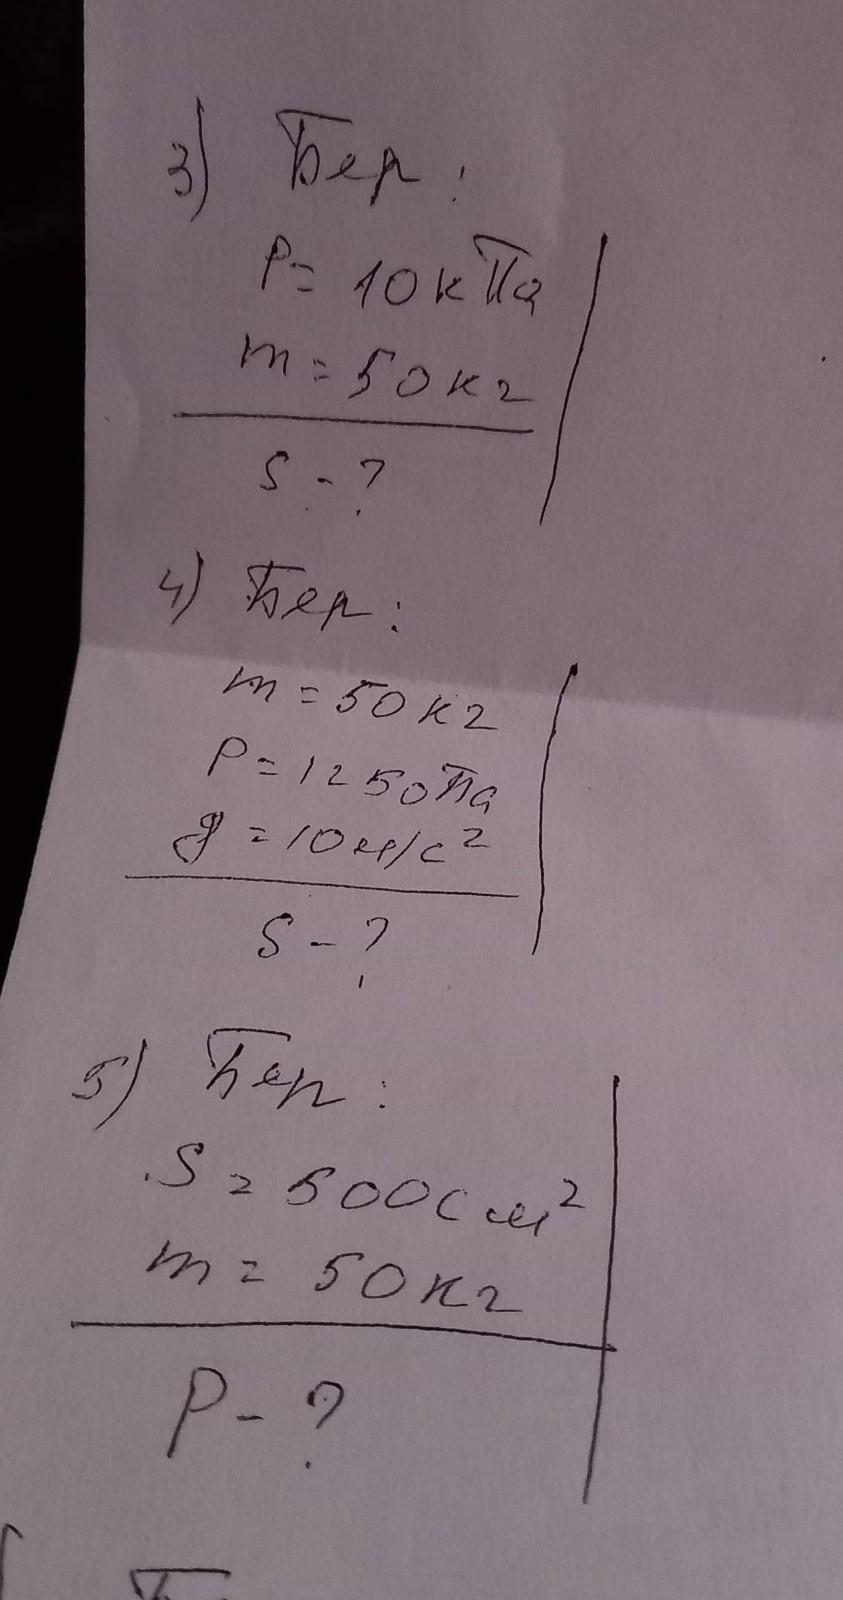 3) Бер:
P = 10 кПа
m = 50 кг
S - ?
4) Бер:
m = 50 кг
P = 1250 Па
g = 10 м/с²
S - ?
5) Бер:
S = 500 см²
m = 50 кг
P - ?